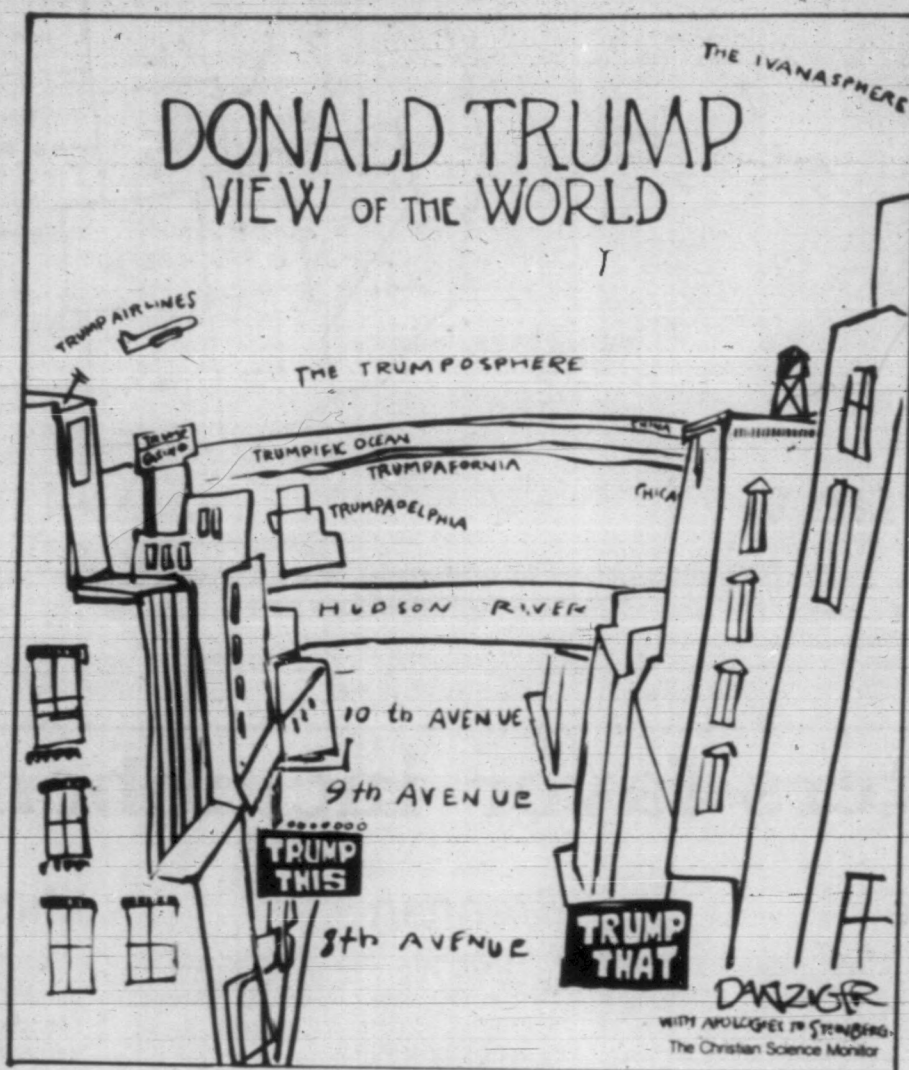 THE IVANASPHERE
DONALD TRUMP
VIEW OF THE WORLD
TRUMP AIRLINES
THE TRUMPOSPHERE
TRUMP
CASINO
TRUMPIFIC OCEAN
CHINA
TRUMPAFORNIA
CHICA
TRUMPADELPHIA
HUDSON RIVER
10th AVENUE
9th AVENUE
TRUMP
THIS
8th AVENUE
TRUMP
THAT
DANZIGER
WITH APOLOGIES TO STEINBERG.
The Christian Science Monitor